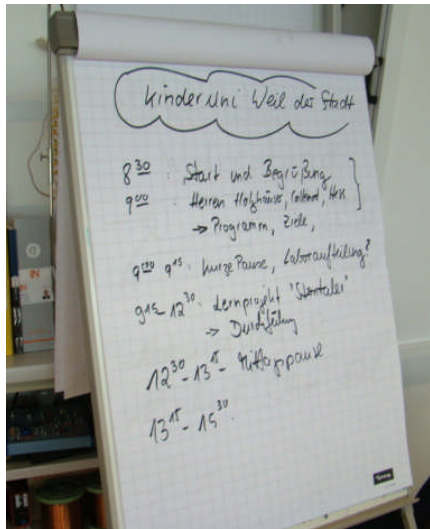 Kinder Uni Weil der Stadt
8³⁰ : Start und Begrüßung
9⁰⁰ : Herren Holzhäuser,
→ Programm, Ziele,
9⁰⁰ 9¹⁵ : kurze Pause, Laboraufteilung?
9¹⁵ - 12³⁰ : Lernprojekt "Sterntaler"
→ Durchführung
12³⁰ - 13¹⁵ - Mittagspause
13¹⁵ - 15³⁰ .